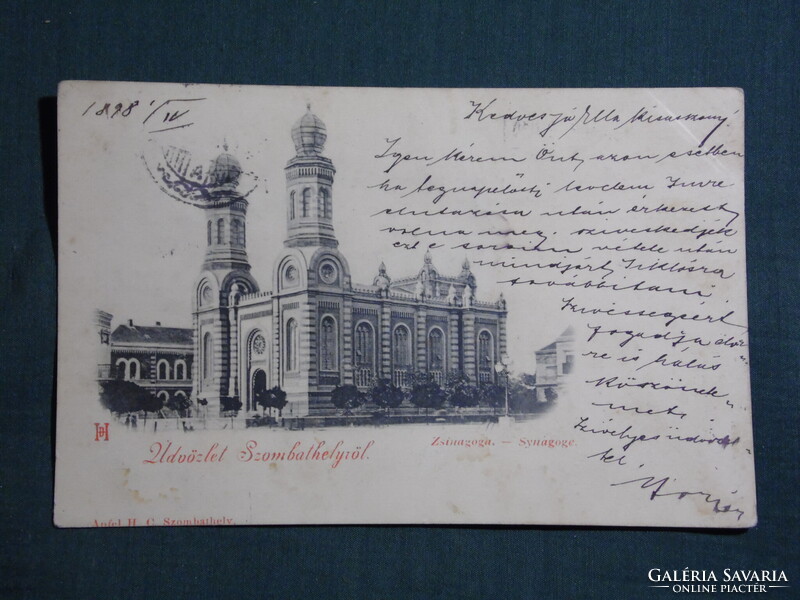 1898 1/IV
Kedves jó Ella kisasszony!
Igen kérem Önt, azon esetben
ha tegnapelőtti levelem Imre
elutazása után érkezett
volna meg, szíveskedjék
ezt e soraim vétele után
mindjárt Siklósra
továbbítani
Szívességért
fogadja előre
is hálás
köszönetemet.
Szívélyes üdvözlettel
Üdvözlet Szombathelyről.
Zsinagoga. — Synagoge.
H. C. Szombathely.
GALÉRIA SAVARIA
ONLINE PIACTÉR